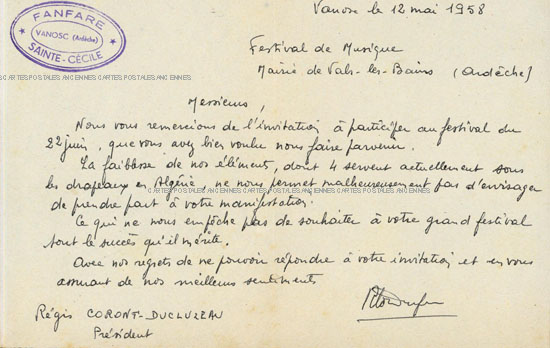 FANFARE
VANOSC (Ardèche)
SAINTE-CÉCILE
Vanosc le 12 mai 1958
Festival de Musique
Mairie de Vals-les-Bains (Ardèche)
CARTES POSTALES ANCIENNES CARTES POSTALES ANCIENNES
Messieurs,
Nous vous remercions de l'invitation à participer au festival du
22 juin, que vous avez bien voulu nous faire parvenir.
La faiblesse de nos éléments, dont 4 servent actuellement sous
les drapeaux en Algérie ne nous permet malheureusement pas d'envisager
CARTES POSTALES ANCIENNES CARTES POSTALES ANCIENNES
de prendre part à votre manifestation.
Ce qui ne nous empêche pas de souhaiter à votre grand festival
tout le succès qu'il mérite.
Avec nos regrets de ne pouvoir répondre à votre invitation et en vous
assurant de nos meilleurs sentiments
Régis CORONT-DUCLUZEAU
Président